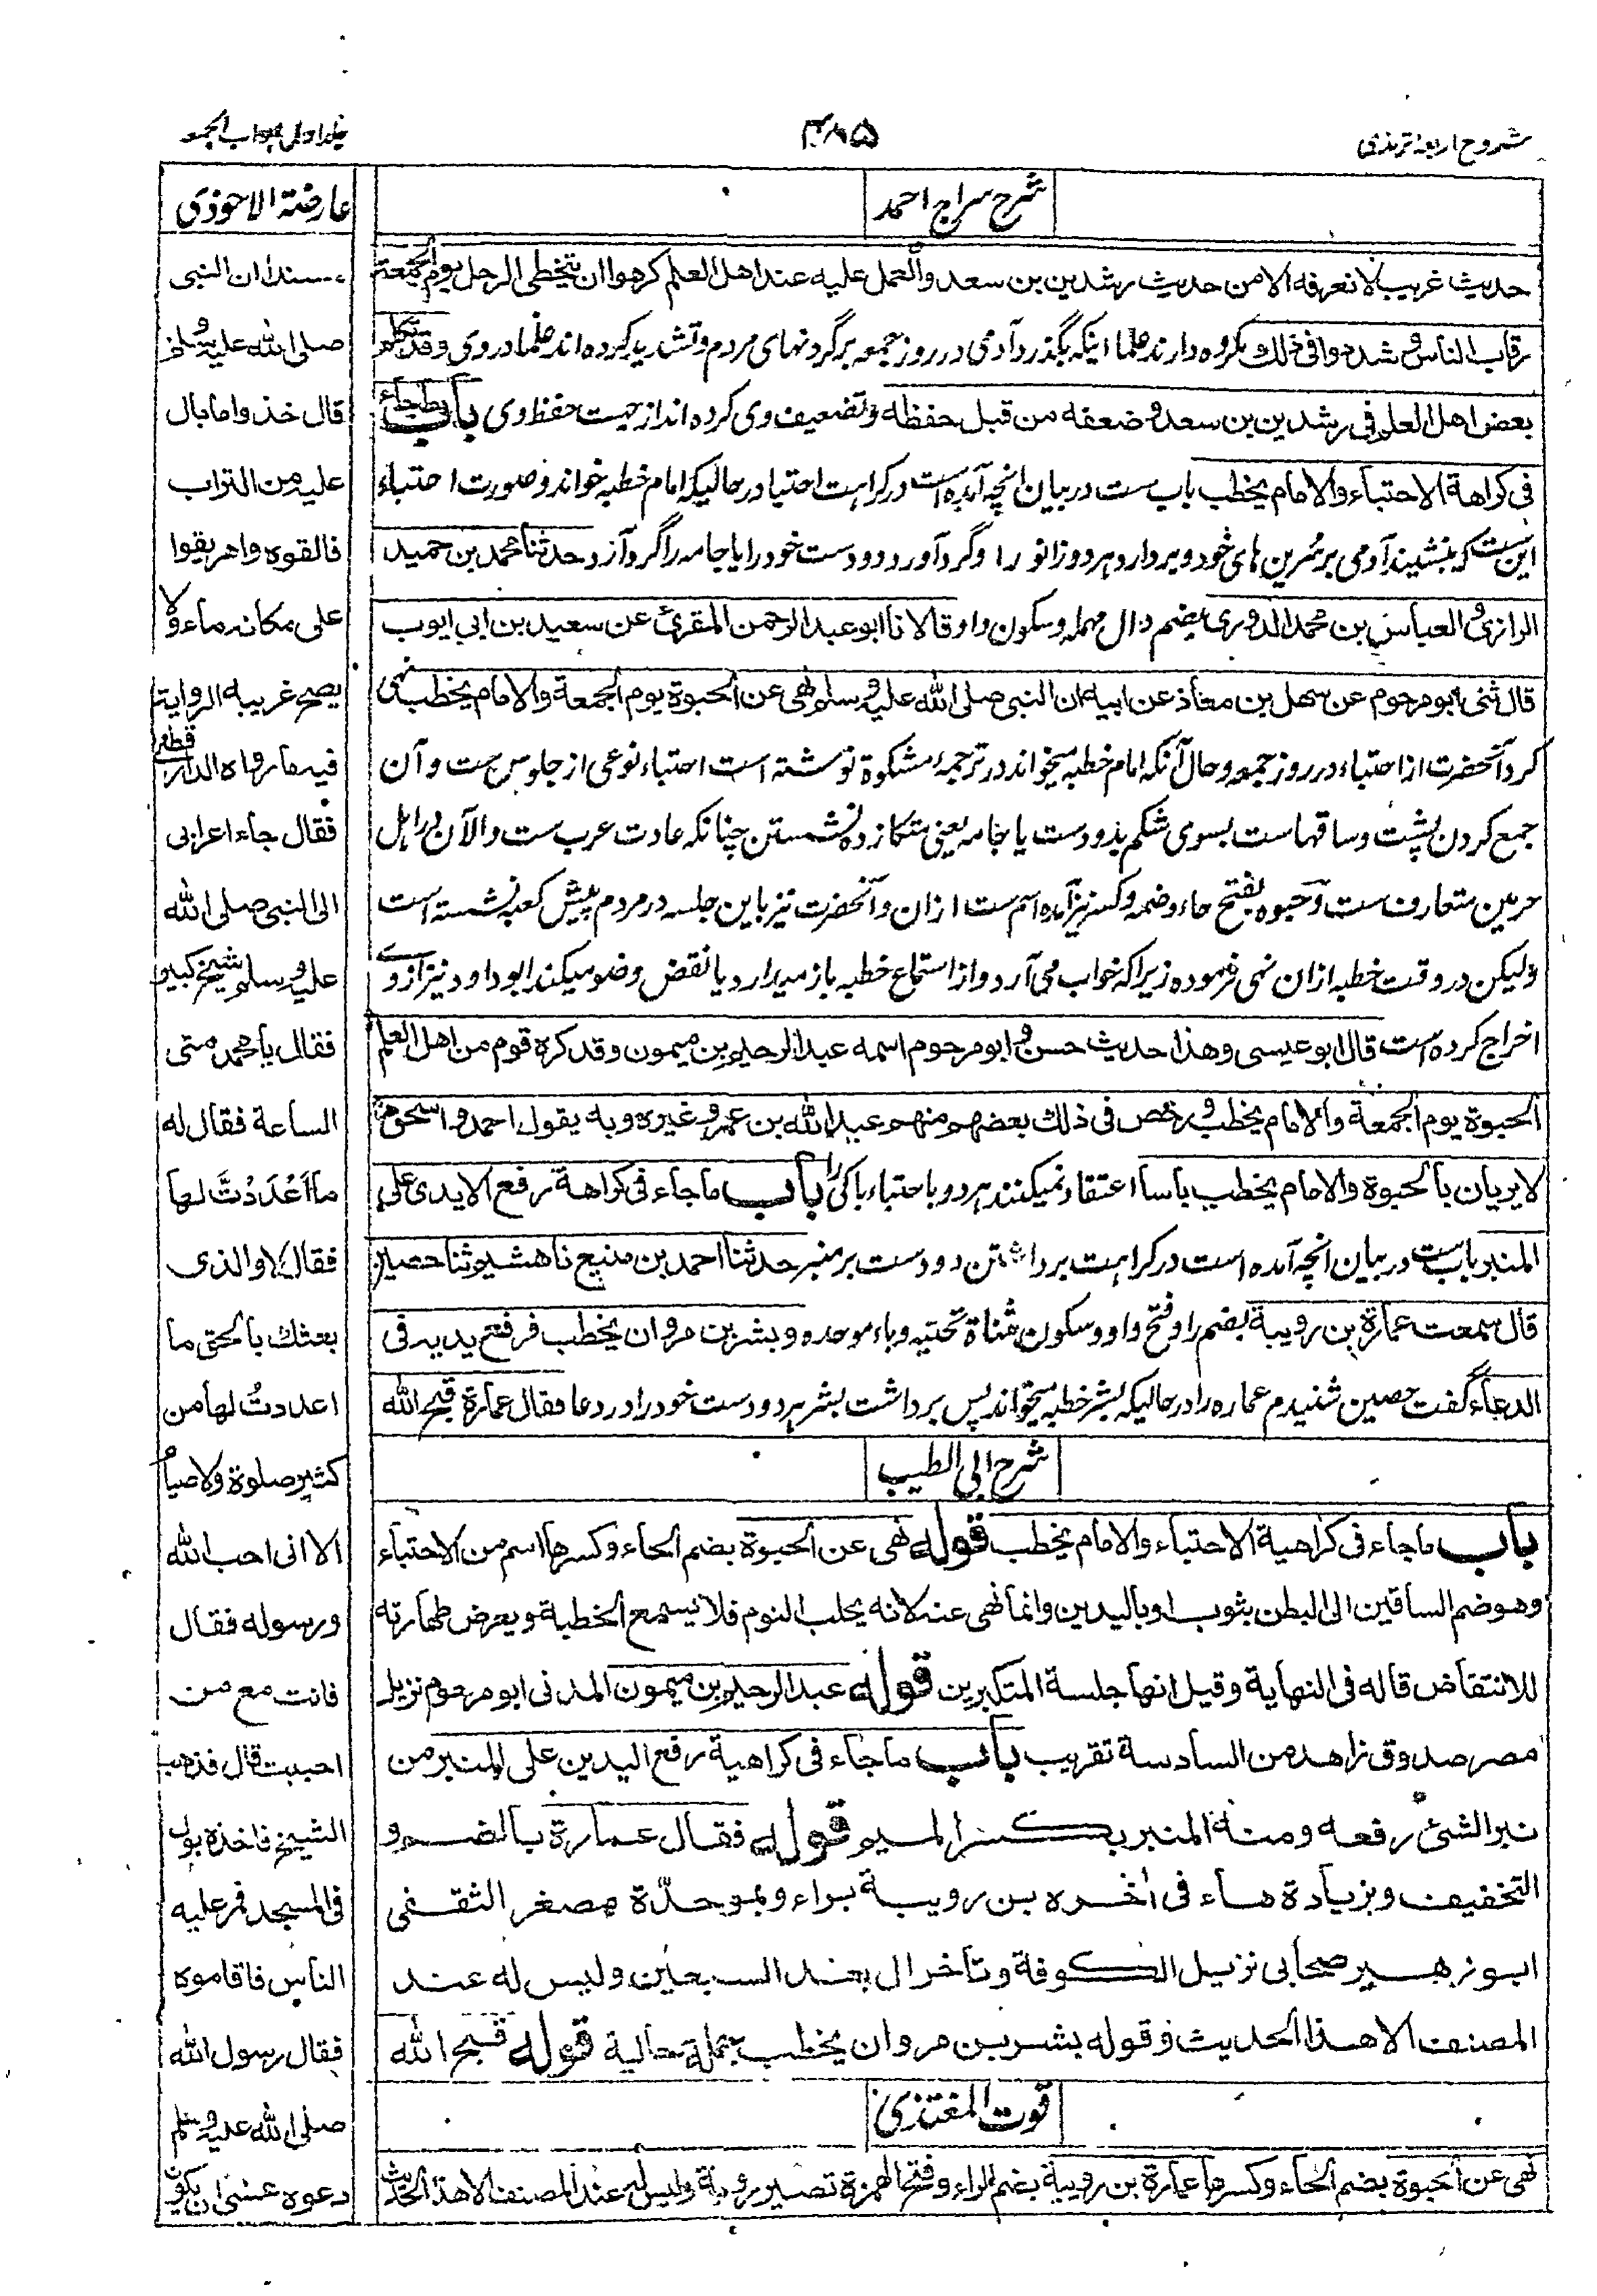 شروح اربعہ ترمذی
۴۸۵
جلد اول ابواب الجمعہ
شرح سراج احمد
حدیث غریب لا نعرفه الا من حدیث رشدین بن سعد والعمل علیه عند اهل العلم کرهوا ان یتخطی الرجل یوم الجمعة
رقاب الناس وشددوا فی ذلك ومکروه دارند علما اینکه بگذرد آدمی در روز جمعه بر گردنهای مردم وتشدید کرده اند علما در وی وقد تکلم
بعض اهل العلم فی رشدین بن سعد وضعفه من قبل حفظه وتضعیف وی کرده اند از جهت حفظ وی باب ما جاء
فی کراهة الاحتباء والامام یخطب باب ست در بیان آنچه آمده است در کراهت احتبا در حالیکه امام خطبه خواند وصورت احتباء
این ست که بنشیند آدمی بر سرین های خود وبردارد هر دو زانو را وگرد آورد دو دست خود را یا جامه را گرد آن حدثنا محمد بن حمید
الرازی والعباس بن محمد الدوری بضم دال مهمله وسکون واو قالا نا ابو عبد الرحمن المقرئ عن سعید بن ابی ایوب
قال ثنی ابو مرحوم عن سهل بن معاذ عن ابیه ان النبی صلی الله علیه وسلم نهی عن الحبوة یوم الجمعة والامام یخطب نهی
کرد آنحضرت از احتباء در روز جمعه وحال آنکه امام خطبه میخواند در ترجمهٔ مشکوة نوشته است احتباء نوعی از جلوس ست وآن
جمع کردن پشت وساقهاست بسوی شکم بدو دست یا جامه یعنی متکا زده نشستن چنانکه عادت عرب ست والآن در اهل
حرمین متعارف ست وحبوه بفتح حاء وضمه وکسر نیز آمده اسم ست ازان وآنحضرت نیز باین جلسه در مردم پیش کعبه نشسته است
ولیکن در وقت خطبه ازان نهی فرموده زیرا که خواب می آرد واز استماع خطبه باز میدارد یا نقض وضو میکند ابو داود نیز از وے
اخراج کرده است قال ابو عیسی وهذا حدیث حسن وابو مرحوم اسمه عبد الرحیم بن میمون وقد کره قوم من اهل العلم
الحبوة یوم الجمعة والامام یخطب ورخص فی ذلك بعضهم منهم عبد الله بن عمر وغیره وبه یقول احمد واسحق
لا یریان بالحبوة والامام یخطب باسا اعتقاد نمیکنند هر دو باحتباء باکی را باب ما جاء فی کراهة رفع الایدی علی
المنبر باب ست در بیان آنچه آمده است در کراهت برداشتن دو دست بر منبر حدثنا احمد بن منیع نا هشیم ثنا حصین
قال سمعت عمارة بن رویبة بضم را وفتح واو وسکون مثناة تحتیه وباء موحده وبشر بن مروان یخطب فرفع یدیه فی
الدعاء گفت حصین شنیدم عماره را در حالیکه بشر خطبه میخواند پس برداشت بشر هر دو دست خود را در دعا فقال عمارة قبح الله
شرح ابی الطیب
باب ما جاء فی کراهیة الاحتباء والامام یخطب قوله نهی عن الحبوة بضم الحاء وکسرها اسم من الاحتباء
وهو ضم الساقین الی البطن بثوب او بالیدین وانما نهی عنه لانه یجلب النوم فلا یسمع الخطبة ویعرض طهارته
للانتقاض قاله فی النهایة وقیل انها جلسة المتکبرین قوله عبد الرحیم بن میمون المدنی ابو مرحوم نزیل
مصر صدوق زاهد من السادسة تقریب باب ما جاء فی کراهیة رفع الیدین علی المنبر من
نبر الشئ رفعه ومنه المنبر بکسر المیم قوله فقال عمارة بالضم و
التخفیف وبزیادة هاء فی اخره بن رویبة براء وبموحدة مصغر الثقفی
ابو زهیر صحابی نزیل الکوفة وتاخر الی بعد السبعین ولیس له عند
المصنف الا هذا الحدیث وقوله بشر بن مروان یخطب جملة حالیة قوله قبح الله
قوت المغتذی
نهی عن الحبوة بضم الحاء وکسرها عمارة بن رویبة بضم الراء وفتح الهمزة تصغیر روبة ولیس له عند المصنف الا هذا الحدیث
عارضة الاحوذی
مسندا ان النبی
صلی الله علیه وسلم
قال خذ واما بال
علیه من التراب
فالقوه واهریقوا
علی مکانه ماء ولا
یصح غریبه الروایة
فیه ما رواه الدارقطنی
فقال جاء اعرابی
الی النبی صلی الله
علیه وسلم شیخ کبیر
فقال یا محمد متی
الساعة فقال له
ما اَعْدَدْتَّ لها
فقال لا والذی
بعثك بالحق ما
اعددتُ لها من
کثیر صلوة ولا صیام
الا انی احب الله
ورسوله فقال
فانت مع من
احببت قال فذهب
الشیخ فاخذه بول
فی المسجد فمر علیه
الناس فاقاموه
فقال رسول الله
صلی الله علیه وسلم
دعوه عسی ان یکون